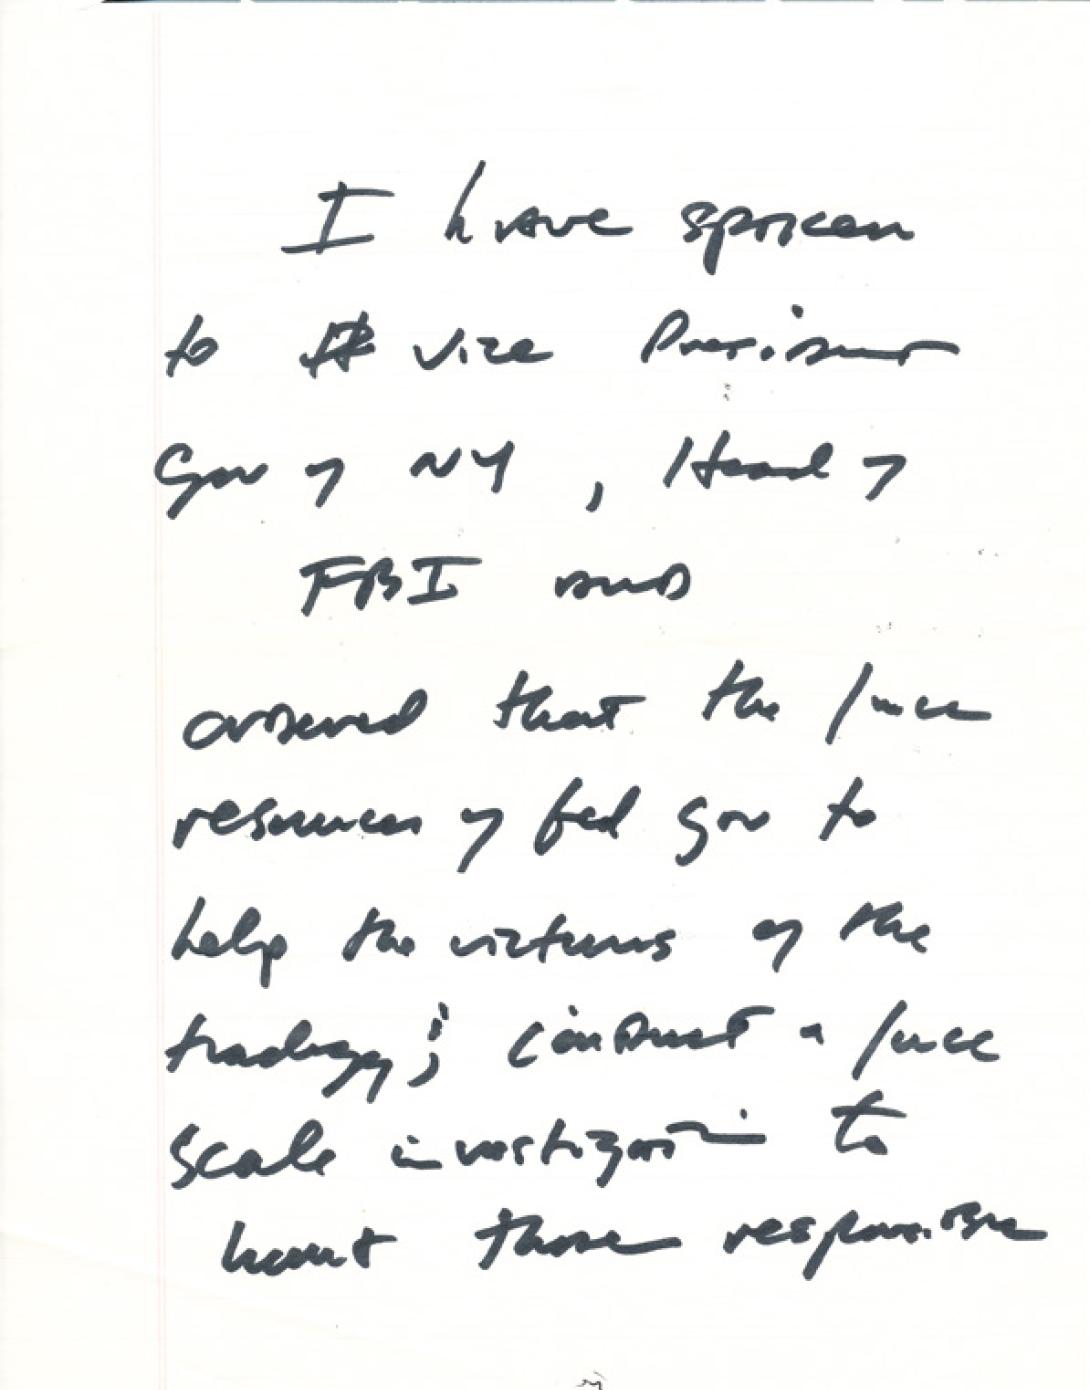 I have spoken
to Vice President
Gov of NY, Head of
FBI and
ordered that the full
resources of fed gov to
help the victims of the
tradegy; conduct a full
scale investigation to
hunt those responsible